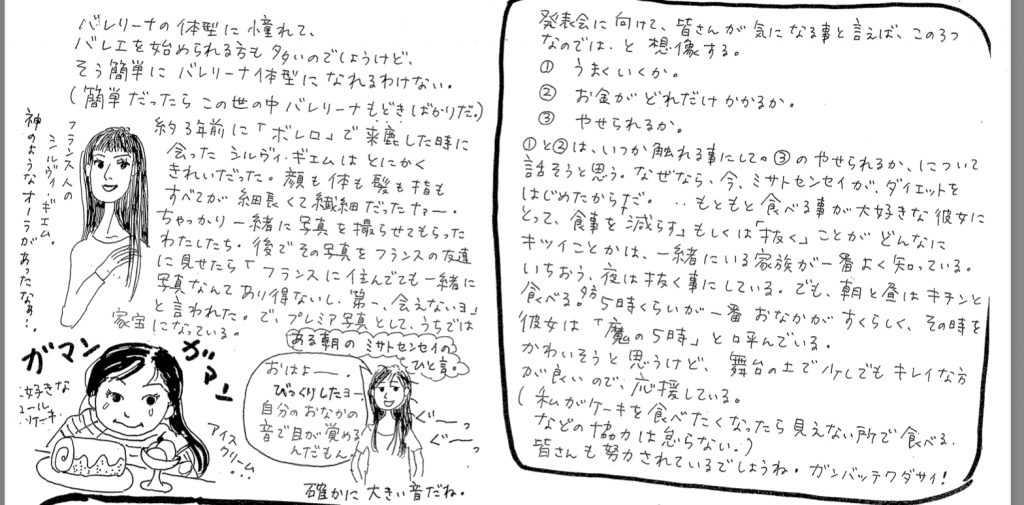 発表会に向けて、皆さんが気になる事と言えば、この3つ
なのでは、と想像する。
① うまくいくか。
② お金がどれだけかかるか。
③ やせられるか。
①と②は、いつか触れる事にしての③のやせられるか、について
話そうと思う。なぜなら、今、ミサトセンセイが、ダイエットを
はじめたからだ。‥もともと食べる事が大好きな彼女に
とって、食事を「減らす」もしくは「抜く」ことがどんなに
キツイことかは、一緒にいる家族が一番よく知っている。
いちおう、夜は抜く事にしている。でも、朝と昼はキチンと
食べる。夕方5時くらいが一番おなかがすくらしく、その時を
彼女は「魔の5時」と呼んでいる。
かわいそうと思うけど、舞台の上で少しでもキレイな方
が良いので、応援している。
(私がケーキを食べたくなったら見えない所で食べる、
などの協力は怠らない。)
皆さんも努力されているでしょうね。ガンバッテクダサイ!
バレリーナの体型に憧れて、
バレエを始められる方も多いのでしょうけど、
そう簡単にバレリーナ体型になれるわけない。
(簡単だったらこの世の中バレリーナもどきばかりだ。)
約3年前に「ボレロ」で来鹿した時に
会ったシルヴィ・ギエムはとにかく
きれいだった。顔も体も髪も指も
すべてが細長くて繊細だったナァー。
ちゃっかり一緒に写真を撮らせてもらった
わたしたち。後でその写真をフランスの友達
に見せたら「フランスに住んでても一緒に
写真なんてあり得ないし、第一、会えないヨ」
と言われた。で、プレミア写真として、うちでは
家宝になっている。
フランス人の
シルヴィ・ギエム。
神のようなオーラがあったなぁ!。
ガマン
ガマン
大好きな
ロール
ケーキ
アイス
クリーム…
ある朝のミサトセンセイの
ひと言。
おはよー。
びっくりしたヨー
自分のおなかの
音で目が覚める
んだもん。
ぐ〜っ
ぐ〜っ
確かに大きい音だね。